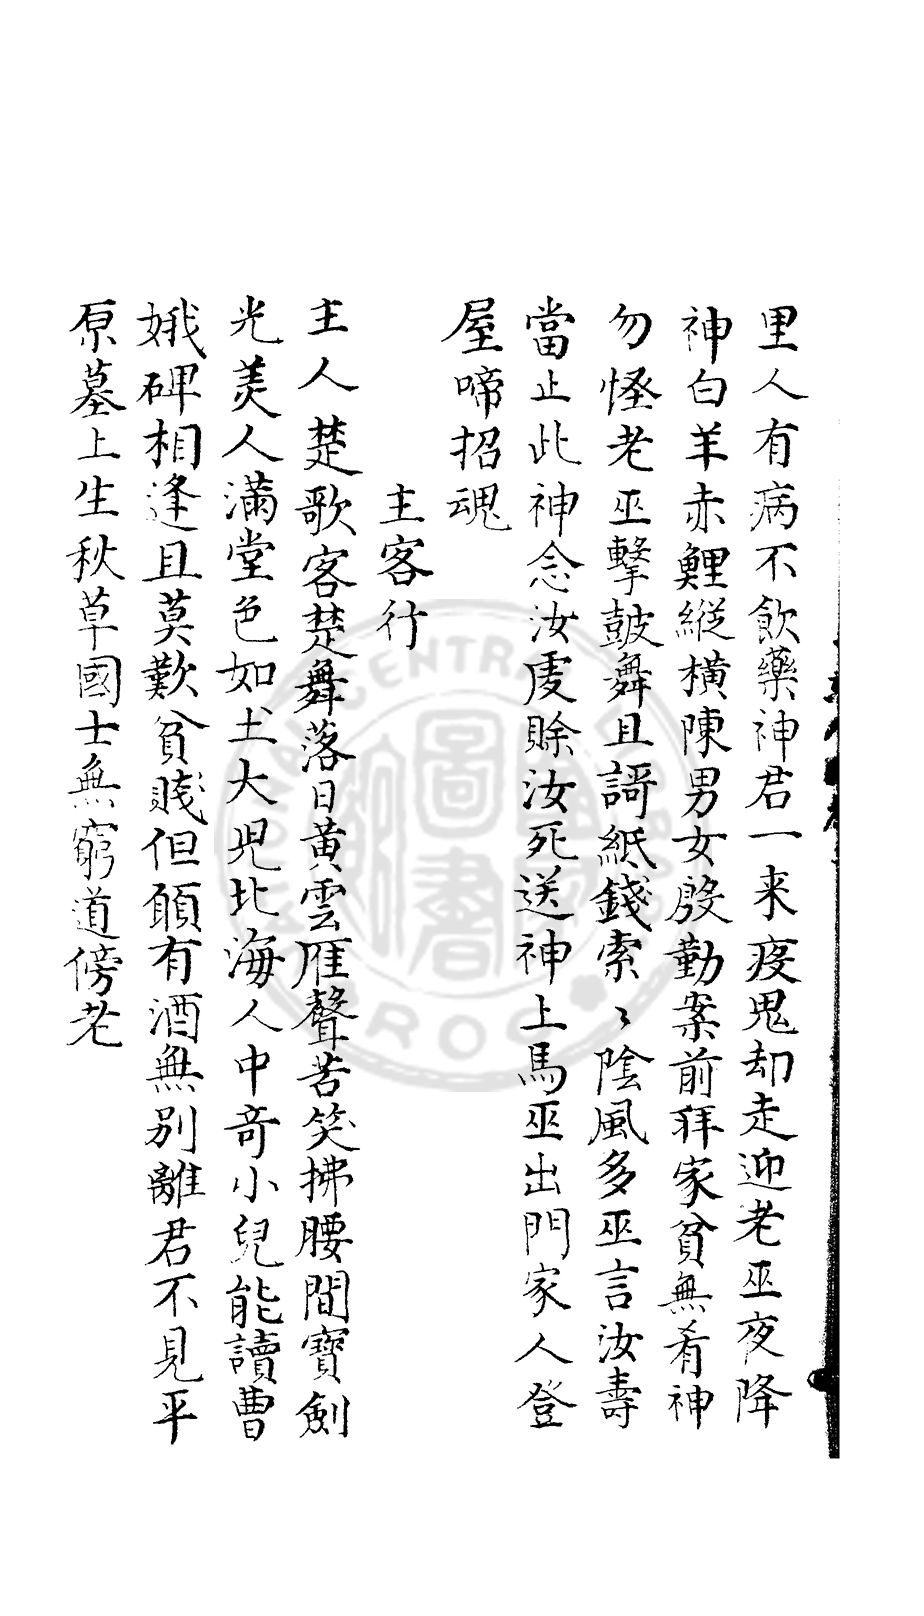 里人有病不飲藥神君一来疫鬼却走迎老巫夜降
神白羊赤鯉縱橫陳男女殷勤案前拜家貧無肴神
勿怪老巫擊皷舞且謌紙錢索〻陰風多巫言汝壽
當止此神念汝虔賒汝死送神上馬巫出門家人登
屋啼招魂
主客行
主人楚歌客楚舞落日黄雲雁聲苦笑拂腰間寶劍
光美人滿堂色如土大児北海人中竒小兒能讀曹
娥碑相逢且莫歎貧賤但願有酒無別離君不見平
原墓上生秋草國士無窮道傍老